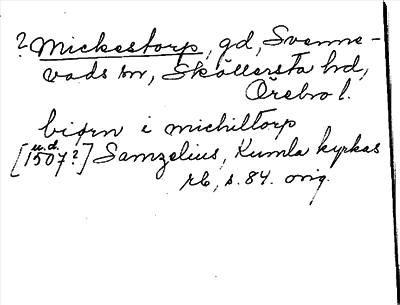 ? Mickestorp, gd, Svenne-
vads sn, Sköllersta hd,
Örebro l.
biørn i michiltorp
[u.d. 1507?] Samzelius, Kumla kyrkas
rb, s. 84. orig.